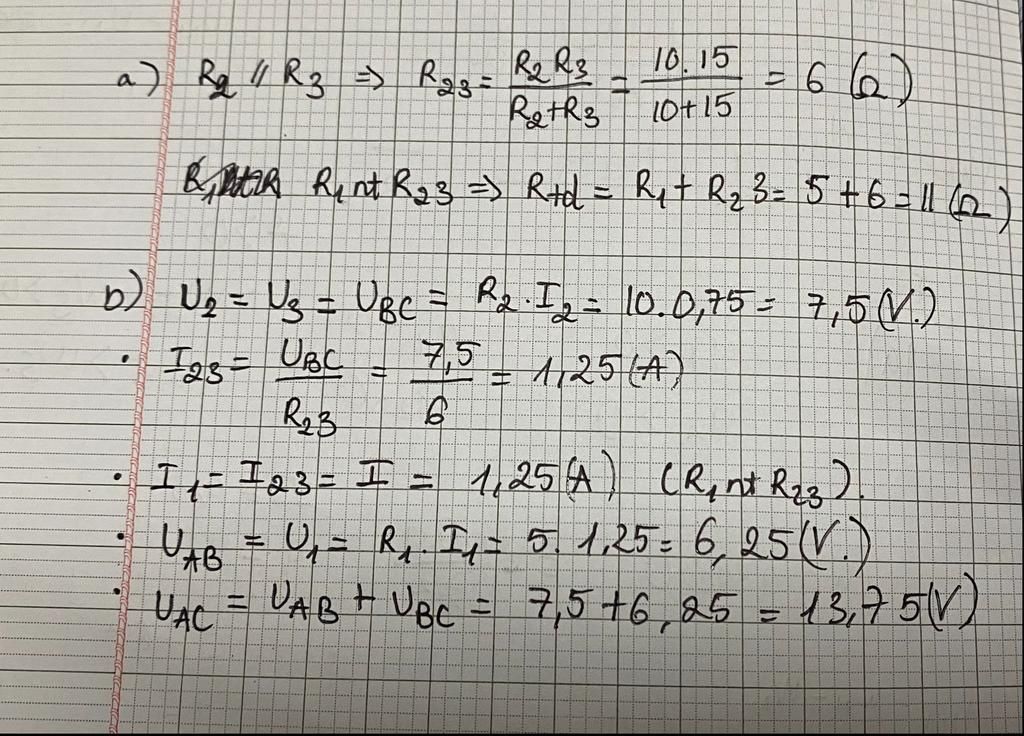 a) R₂ // R₃ => R₂₃ = R₂R₃/R₂+R₃ = 10.15/10+15 = 6 (Ω)
R₁ nt R₂₃ => Rtđ = R₁ + R₂3 = 5 + 6 = 11 (Ω)
b) U₂ = U₃ = UBC = R₂.I₂ = 10.0,75 = 7,5 (V.)
• I₂₃ = UBC/R₂₃ = 7,5/6 = 1,25 (A)
• I₁ = I₂₃ = I = 1,25 (A) (R₁ nt R₂₃).
• UAB = U₁ = R₁.I₁ = 5.1,25 = 6,25 (V.)
• UAC = UAB + UBC = 7,5 + 6,25 = 13,75 (V)